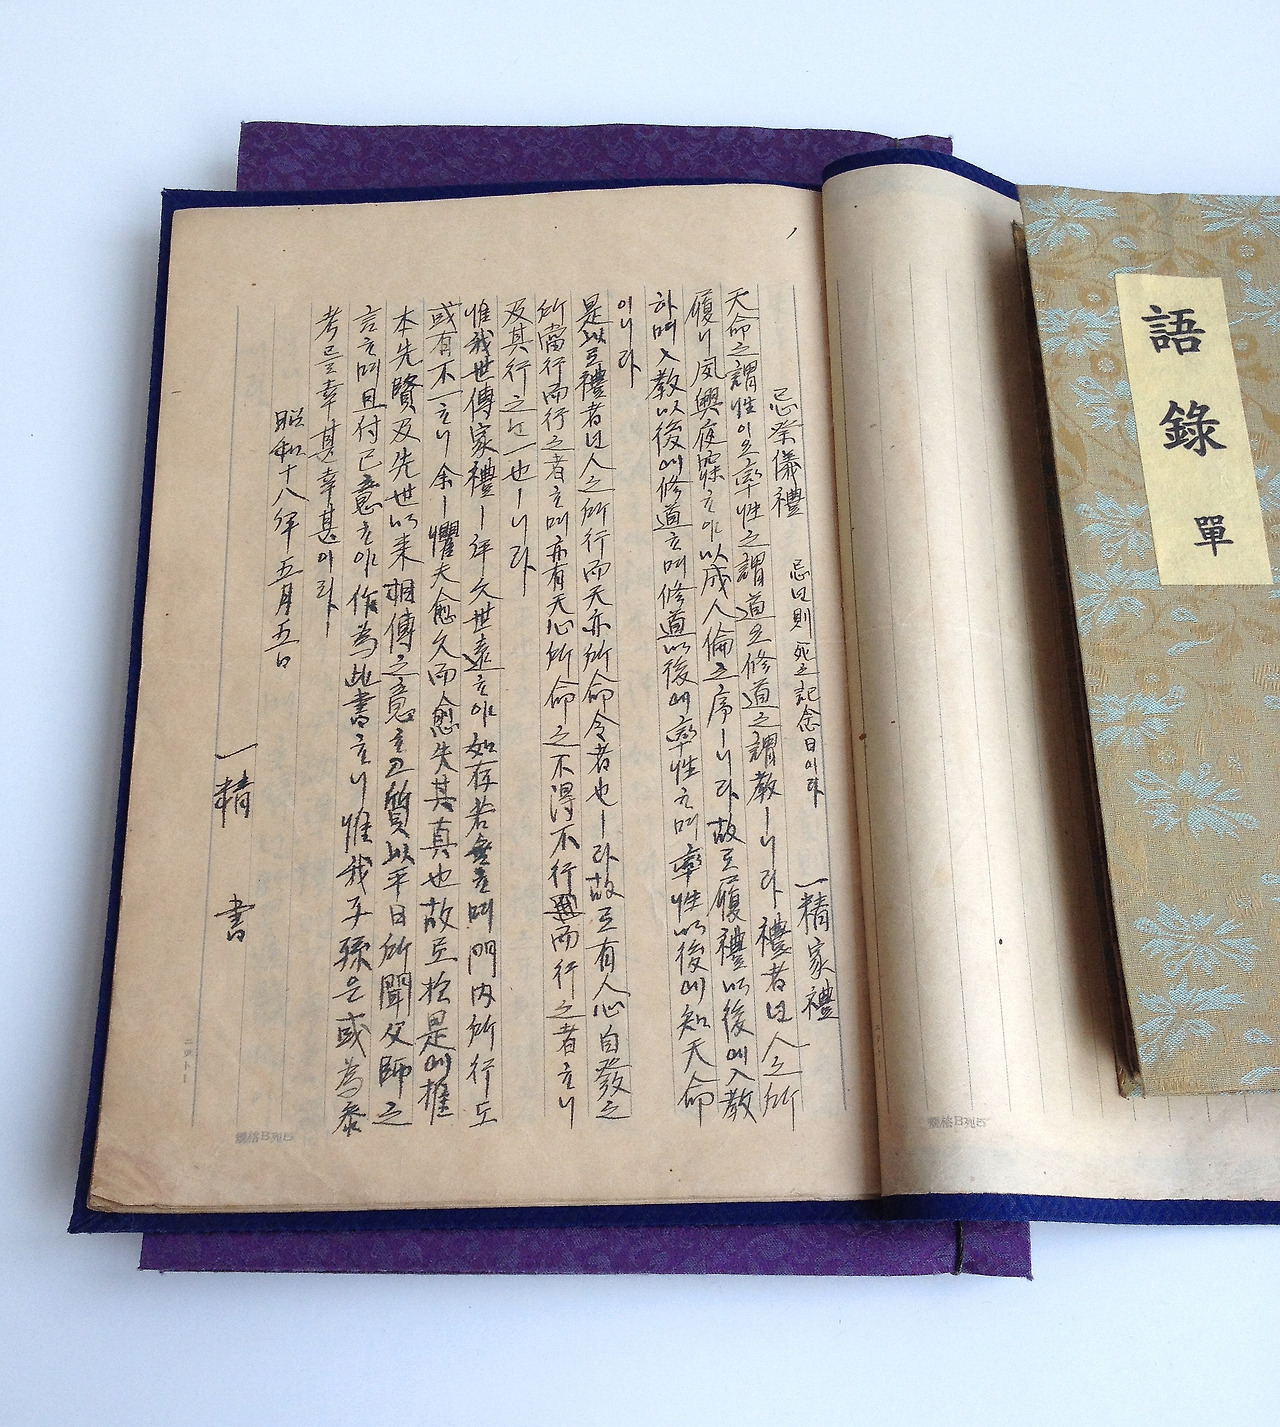 語錄 單
忌祭儀禮 忌난則 死之記念日이라 一精家禮
天命之謂性이오 率性之謂道오 修道之謂敎ㅣ니라 禮者난 人之所
履니 夙興夜寐하야 以成人倫之序ㅣ니라 故로 履禮以後에 入敎
하며 入敎以後에 修道하며 修道以後에 率性하며 率性以後에 知天命
이니라
是以로 禮者난 人之所行而天亦所命令者也ㅣ라 故로 有人心自發之
所當行而行之者하며 亦有天心所命之不得不行而行之者하니
及其行之난 一也ㅣ니라
惟我世傳家禮ㅣ 年久世遠하야 如存若無하며 門內所行도
或有不一하니 余ㅣ 懼夫愈久而愈失其真也 故로 於是에 推
本先賢及先世以來相傳之意하고 質以平日所聞父師之
言하며 且付己意하야 作為此書하니 惟我子孫은 或為參
考 幸甚幸甚이라
昭和十八年 五月五日
一精 書
規格B列5
規格B列5